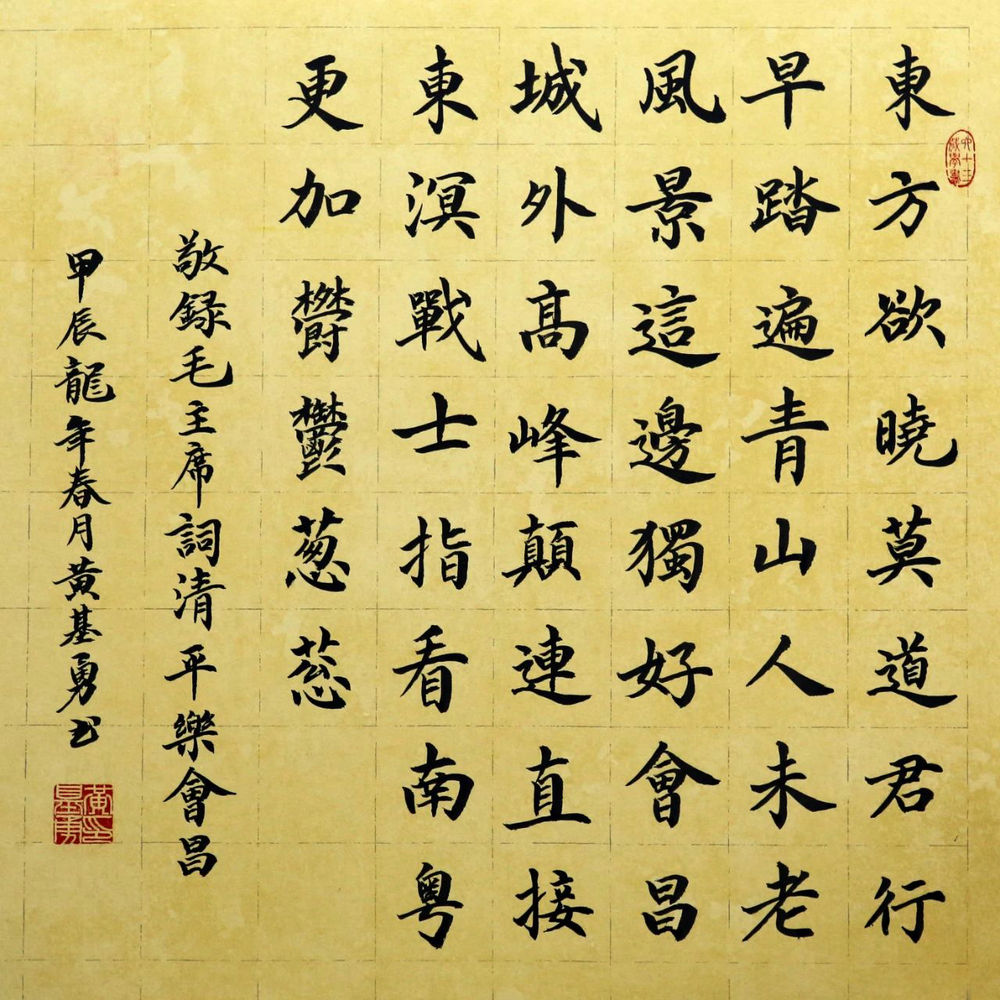 東方欲曉莫道君行
早踏遍青山人未老
風景這邊獨好會昌
城外高峰顛連直接
東溟戰士指看南粵
更加鬱鬱葱葱
敬録毛主席詞清平樂會昌
甲辰龍年春月黄基勇书
黄印基勇